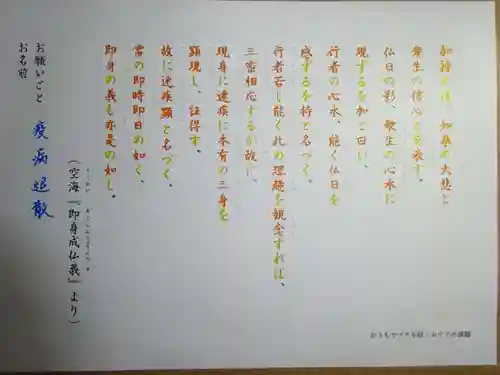 加持とは、如来の大悲と
衆生の信心とを表す。
仏日の影、衆生の心水に
現ずるを加と曰い、
行者の心水、能く仏日を
感ずるを持と名づく。
行者若し能く此の理趣を観念すれば、
三密相応するが故に、
現身に速疾に本有の三身を
顕現し、証得す。
故に速疾顕と名づく。
常の即時即日の如く、
即身の義も亦是の如し。
(空海『即身成仏義』より)
くうかい そくしんじょうぶつぎ
お願いごと 疫病退散
お名前